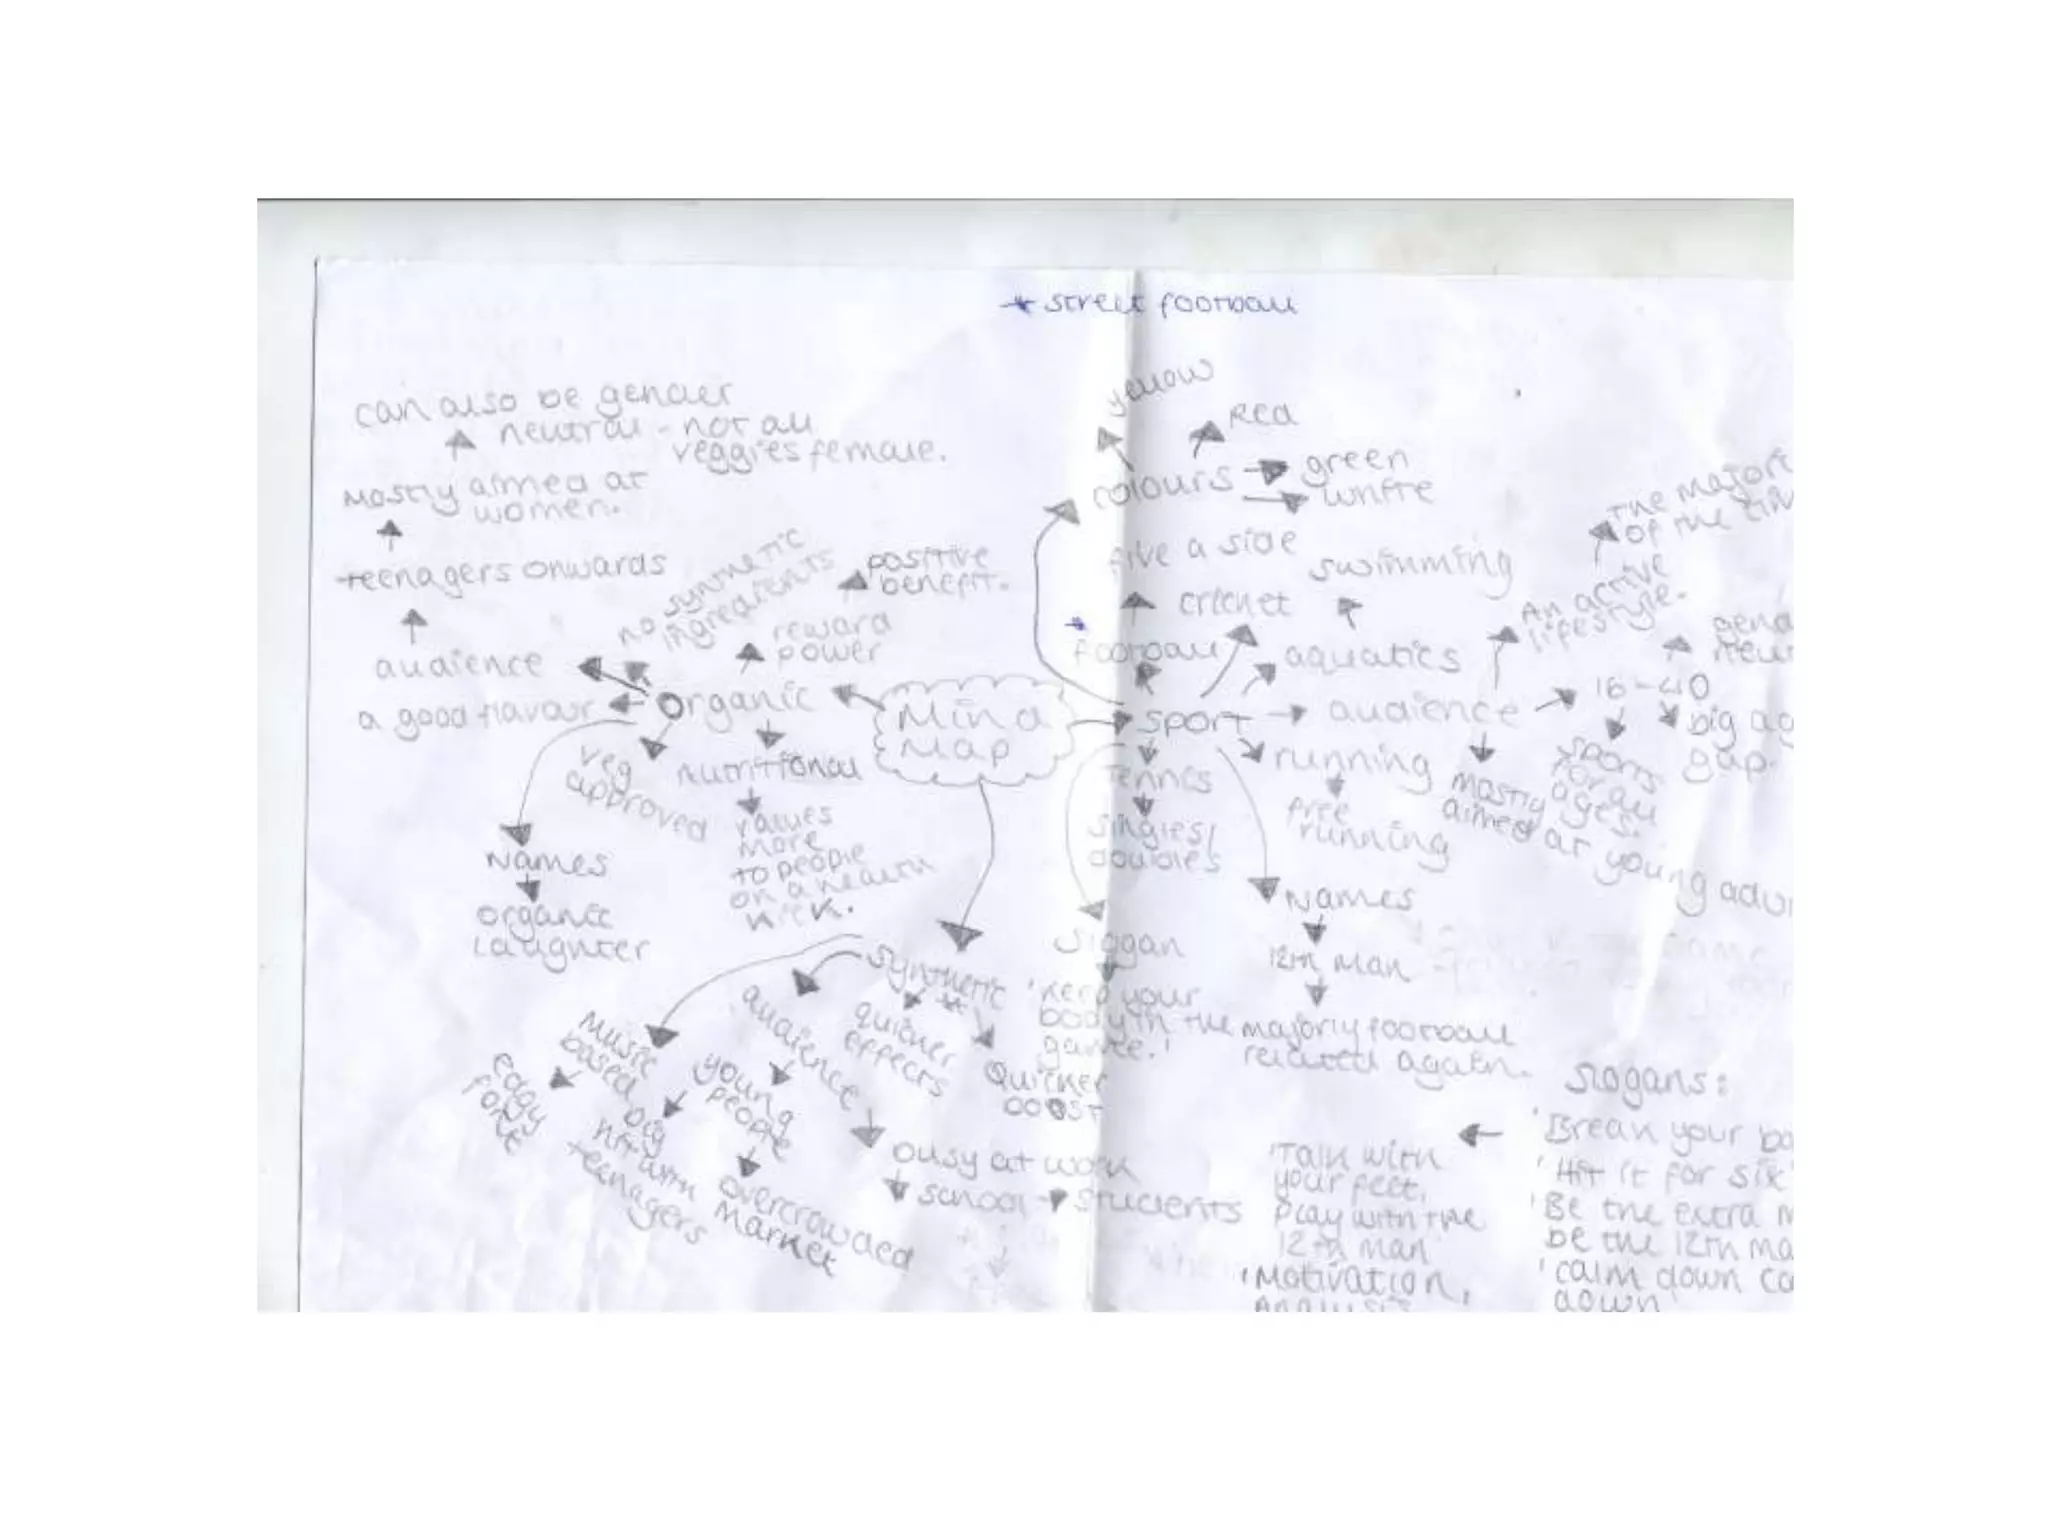 * street football
can also be gender
neutral - not all
veggies female.
Mostly aimed at
women.
teenagers onwards
audience
no synthetic
ingredients
positive
benefit.
reward
power
a good flavour
Organic
veg
approved
nutritional
values
more
to people
on a health
kick.
Names
organic
laughter
Mind
Map
yellow
Red
colours
green
white
five a side
cricket
swimming
*
football
aquatics
sport
audience
An active
lifestyle.
the majori
of the tim
gend
neu
16-40
big ag
gap.
sports
for all
ages.
mostly
aimed at young adul
running
free
running
tennis
singles/
doubles
Names
12th Man
majoriy football
related again.
Sloggan
'keep your
body in the
game.'
synthetic
audience
quicker
effects
Quicker
boost
Music
based
edgy
font
big
hit with
teenagers
young
people
overcrowded
market
busy at work
school
students
slogans:
'Break your bo
'Hit it for six'
'Be the extra m
be the 12th ma
'calm down co
down
'Talk with
your feet,
Play with the
12th man
'Motivation,
Analysis